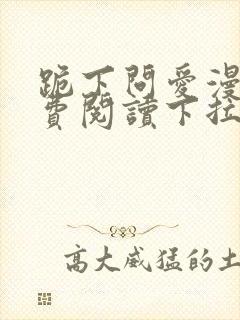 跪下問愛漫
費閱讀下拉
高大威猛的土